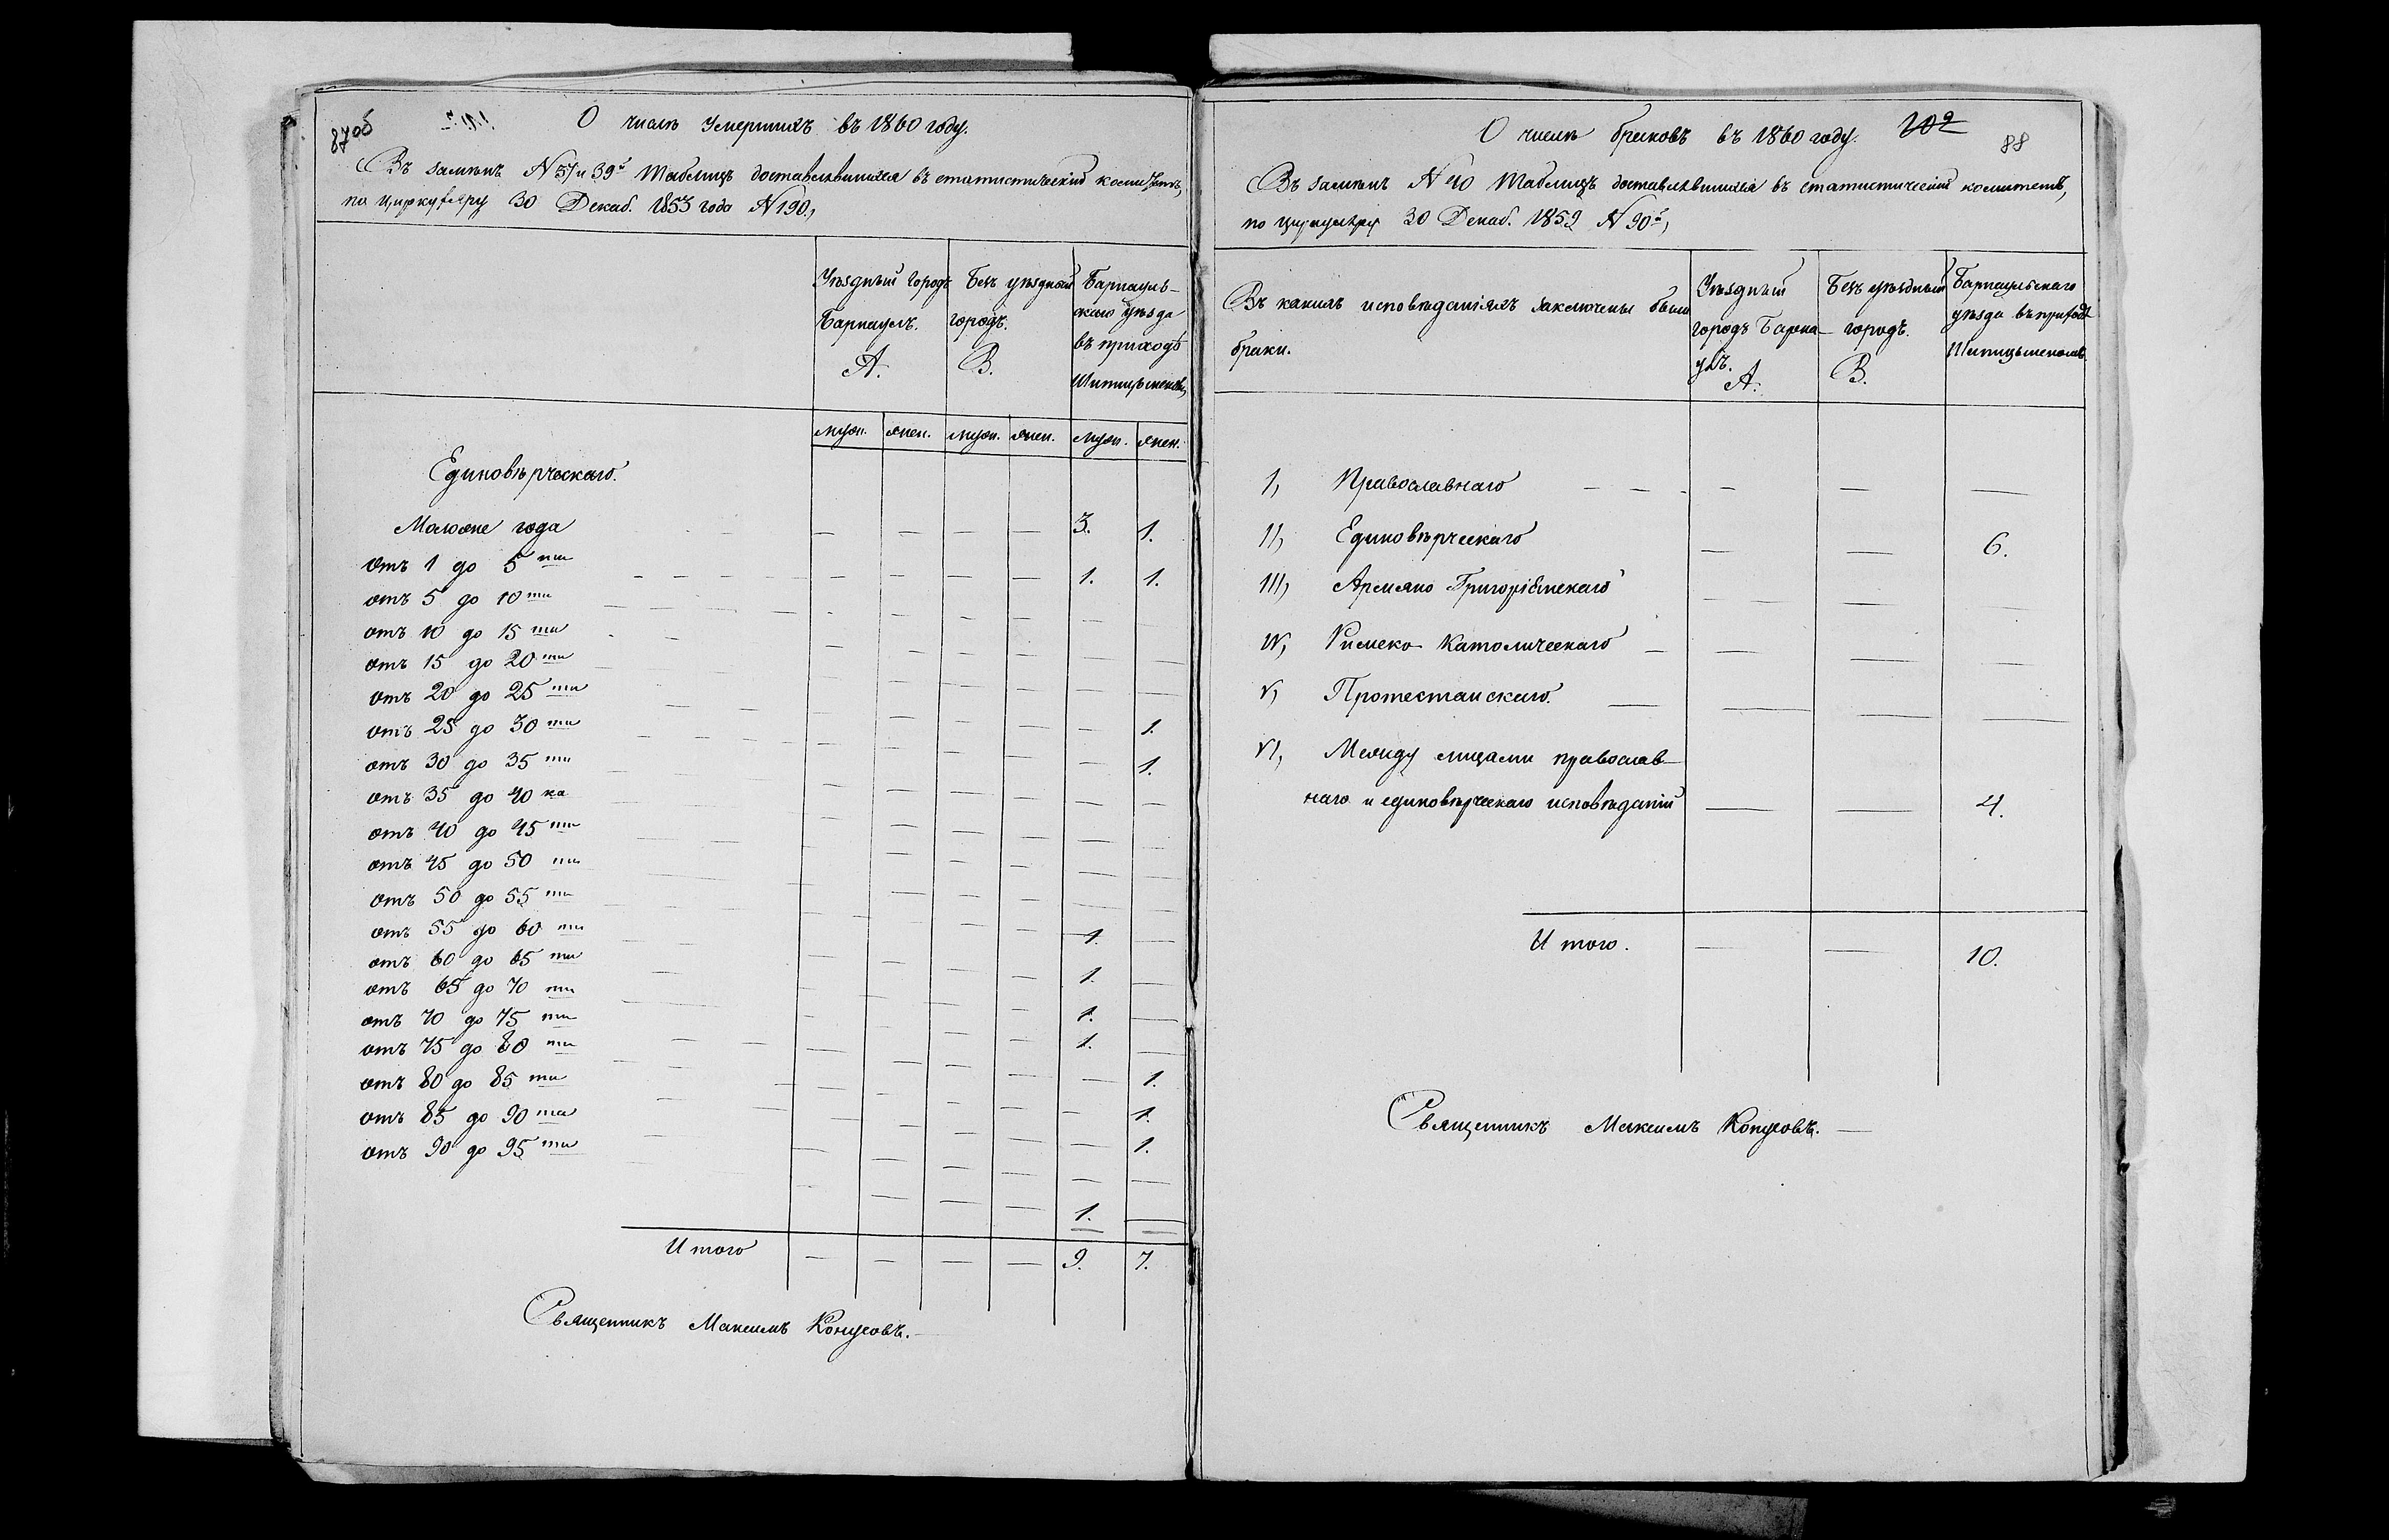 87об
О числѣ умершихъ въ 1860 году.
Въ замѣнъ № 37 и 39й таблицъ доставлявшихся въ статистическій комитетъ,
по циркуляру 30 Декаб. 1853 года № 190,
Уѣздный городъ Барнаулъ. А.
Безъ уѣздный городъ. В.
Барнаульскаго уѣзда въ приходѣ
муж. жен. муж. жен. муж. жен.
Единовѣрческаго.
Моложе года — — — — 3. 1.
отъ 1 до 5ти — — — — 1. 1.
отъ 5 до 10ти
отъ 10 до 15ти
отъ 15 до 20ти
отъ 20 до 25ти 1.
отъ 25 до 30ти 1.
отъ 30 до 35ти
отъ 35 до 40ка
отъ 40 до 45ти
отъ 45 до 50ти
отъ 50 до 55ти 1. —
отъ 55 до 60ти 1. —
отъ 60 до 65ти 1. —
отъ 65 до 70ти 1. —
отъ 70 до 75ти — 1.
отъ 75 до 80ти — 1.
отъ 80 до 85ти — 1.
отъ 85 до 90та — —
отъ 90 до 95ти 1. —
Итого — — — — 9. 7.
Священникъ Максимъ Конусовъ.
О числѣ браковъ въ 1860 году.
102
88
Въ замѣнъ № 40 таблицъ доставлявшихся въ статистическій комитетъ,
по циркуляру 30 Декаб. 1852 № 90й,
Въ какихъ исповѣданіяхъ заключены были
браки.
Уѣздный городъ Барнаулъ. А.
Безъ уѣздный городъ. В.
Барнаульскаго уѣзда въ приходѣ
I, Православнаго — — —
II, Единовѣрческаго — — 6.
III, Армяно Григоріянскаго — — —
IV, Римско Католическаго — — —
V, Протестанскаго. — — —
VI, Между лицами православ-
наго и единовѣрческаго исповѣданій — — 4.
Итого. — — 10.
Священникъ Максимъ Конусовъ.